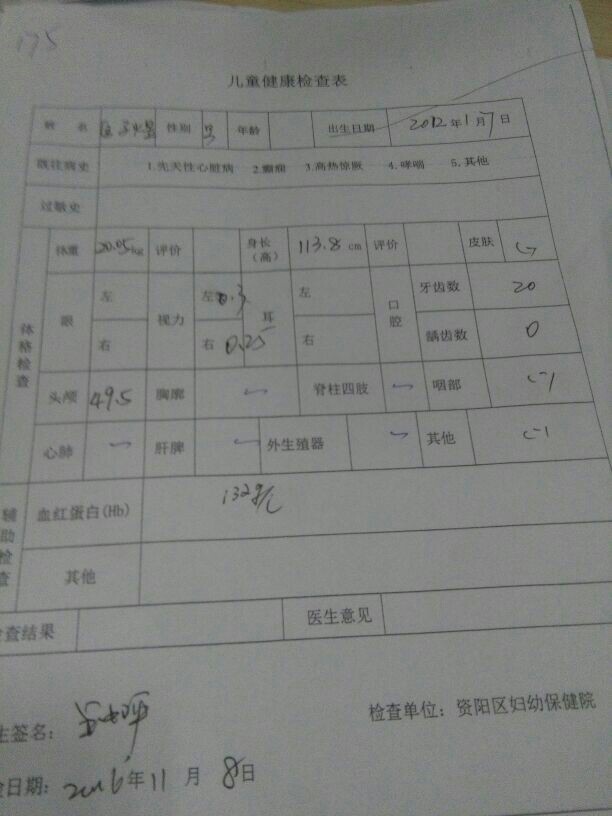 175
儿童健康检查表
姓 名 性别 男 年龄 出生日期 2012年1月7日
既往病史 1.先天性心脏病 2.癫痫 3.高热惊厥 4.哮喘 5.其他
过敏史
体格检查
体重 20.05kg 评价 身长（高） 113.8 cm 评价 皮肤 (-)
眼 左 视力 左 0.3 耳 左 口腔 牙齿数 20
右 右 0.25 右 龋齿数 0
头颅 49.5 胸廓 - 脊柱四肢 - 咽部 (-)
心肺 - 肝脾 - 外生殖器 - 其他 (-)
辅助检查
血红蛋白(Hb) 132g/L
其他
检查结果 医生意见
生签名：
检查单位：资阳区妇幼保健院
检日期：2016年11月8日